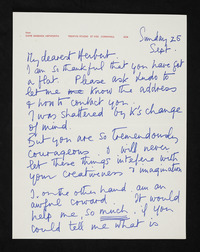 Sunday 25
Sept.
My dearest Herbert.
I am so thankful that you have got
a flat. Please ask Ludo to
let me know the address
& how to contact you
I was shattered by it's change
of mind.
But you are so tremendously
courageous. I will never
let these things interfere with
your creativeness & imagination
I, on the other hand am an
awful coward. It would
help me, so much, if you
could tell me what is